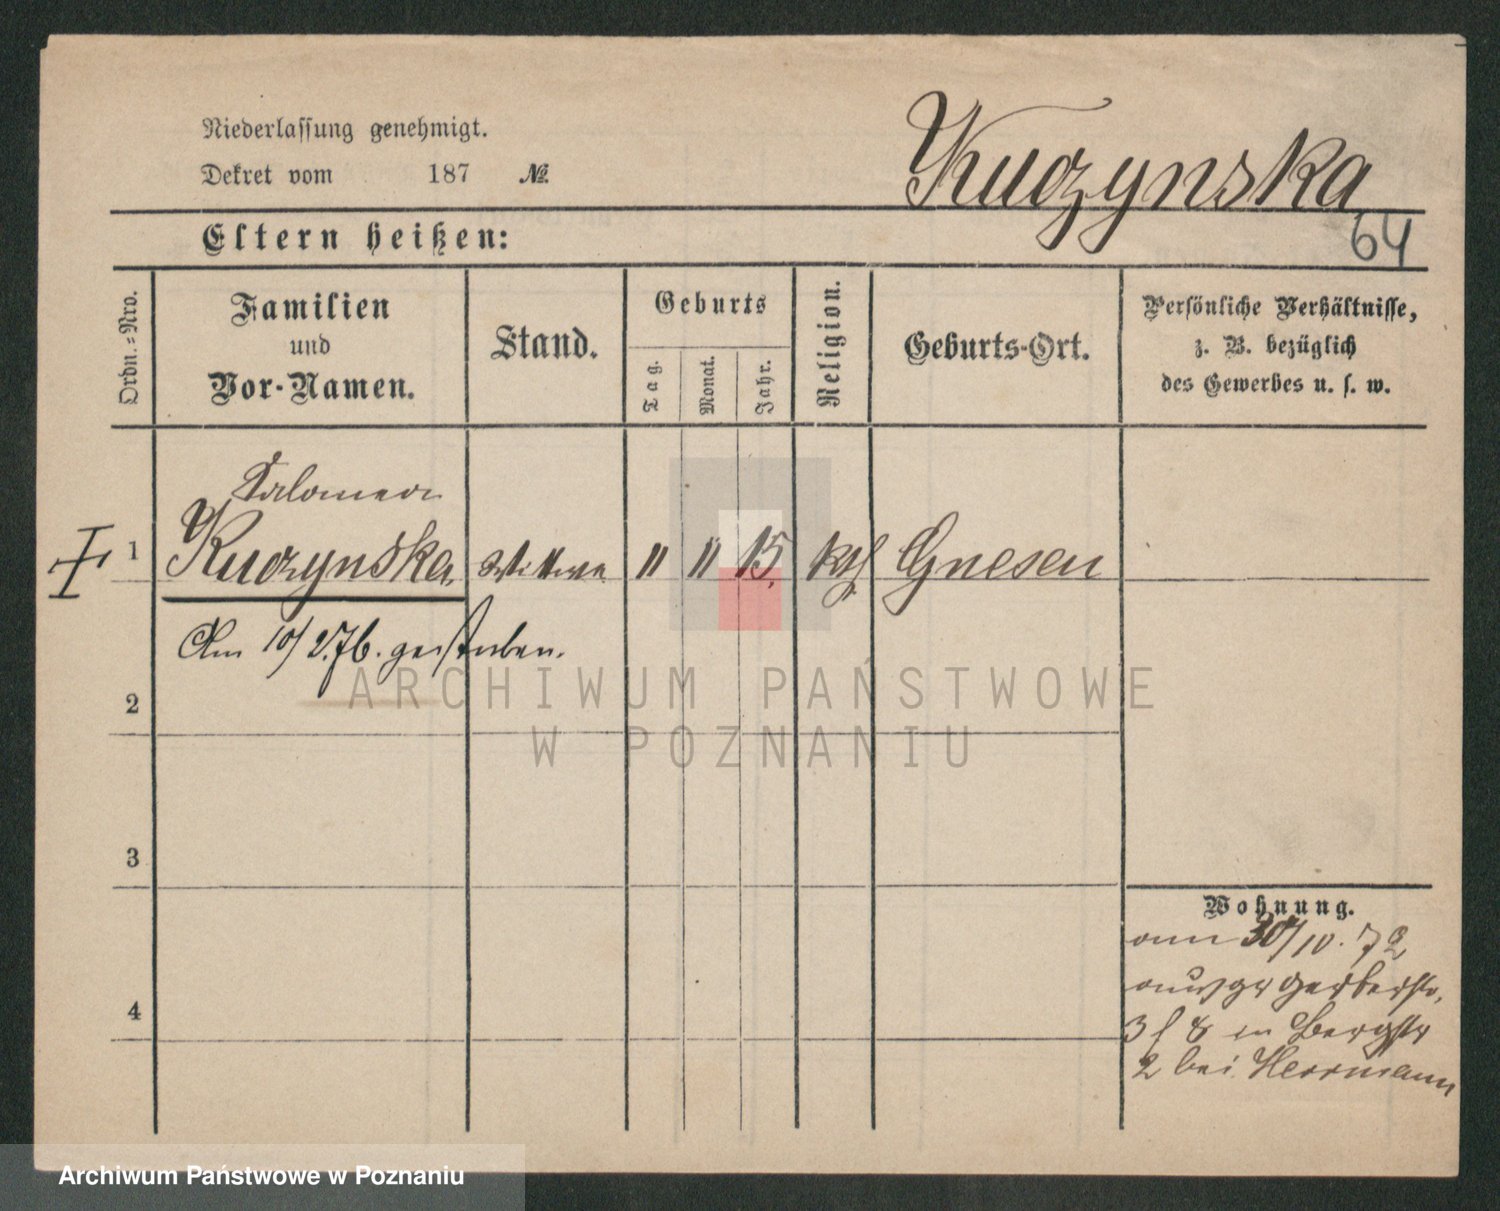 Niederlassung genehmigt.
Dekret vom 187 №
Kuczynska
64
Eltern heißen:
Ordn.-Nro.
Familien
und
Vor-Namen.
Stand.
Geburts
Tag.
Monat.
Jahr.
Religion.
Geburts-Ort.
Persönliche Verhältnisse,
z. B. bezüglich
des Gewerbes u. s. w.
Salomea
1 Kuczynska. Wittwe " " 15. kth Gnesen
Am 10/2.76. gestorben.
2
3
4
ARCHIWUM PAŃSTWOWE
W POZNANIU
Wohnung.
am 30/10. 72
Gerberstr.
3 / 8 in Bergstr
2 bei Herrmann
Archiwum Państwowe w Poznaniu